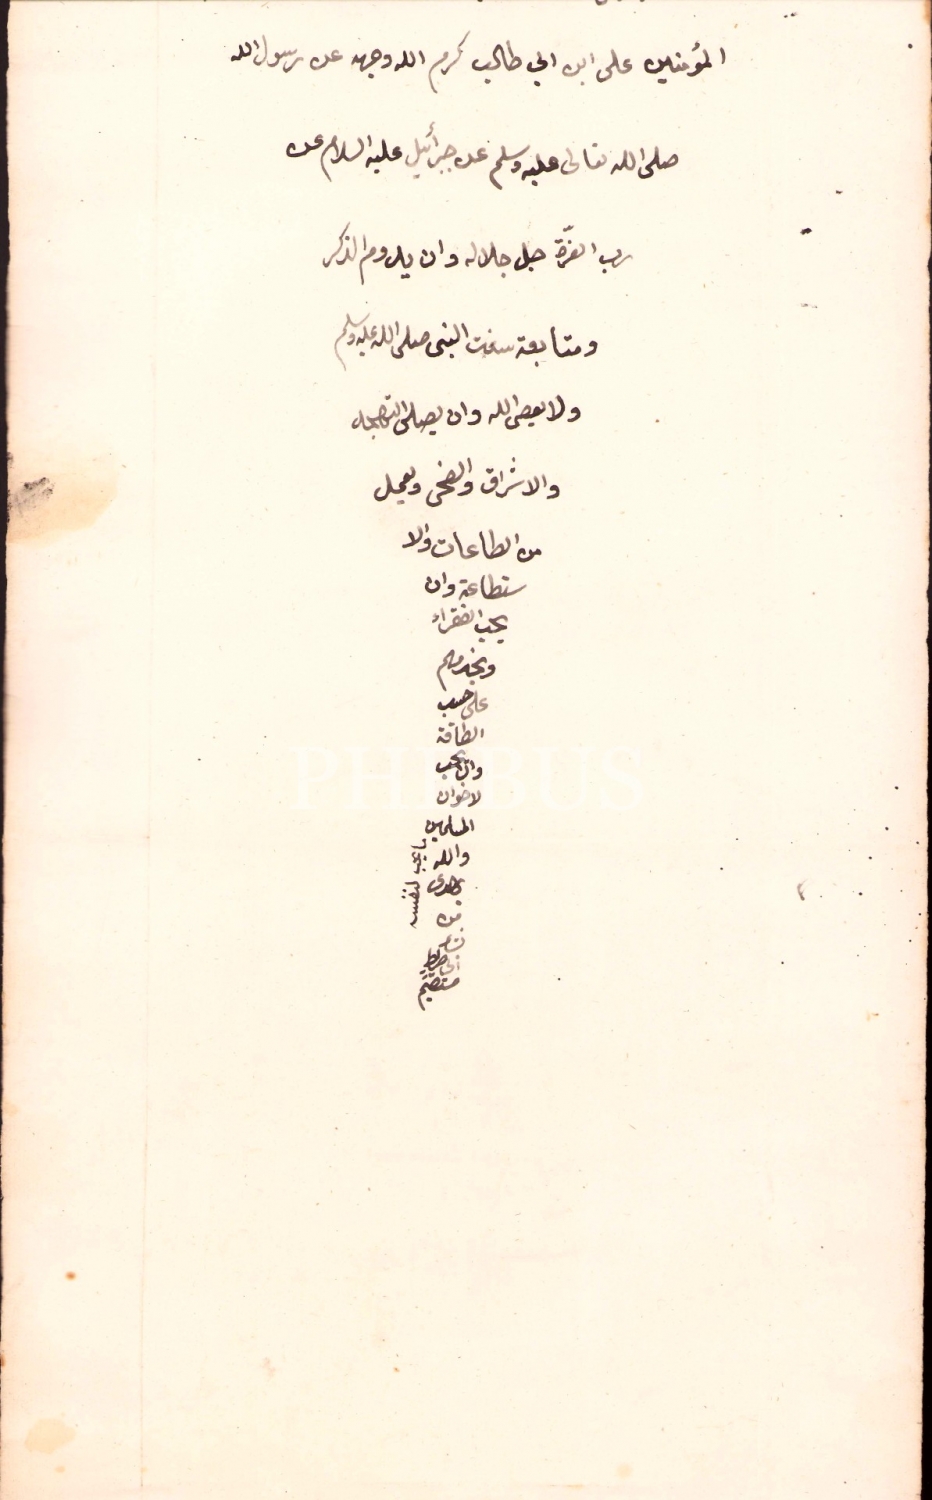 المؤمنين على ابن ابي طالب كرم الله وجهه عن رسول الله
صلى الله تعالى عليه وسلم عن جبرأئيل عليه السلام عن
رب العزّة جل جلاله وان يدوم الذكر
ومتابعة سنت النبى صلى الله عليه وسلم
ولا يعصى الله وان يصلى التهجد
والاشراق والضحى ويعمل
من الطاعات والا
ستطاعة وان
يحب الفقراء
ويخدمهم
على حسب
الطاقة
وان يحب
لاخوان
المسلمين
ما يحب لنفسه
والله
يهدى
من
يشاء
الى صراط
مستقيم
PHEBUS